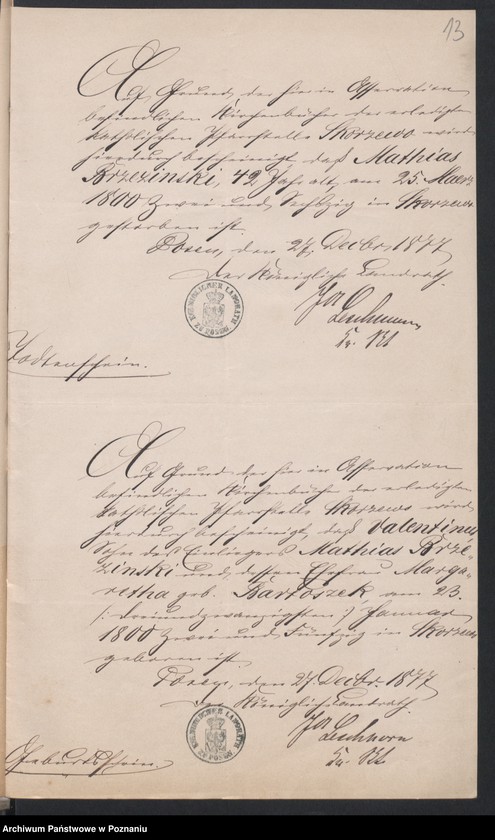 13
Auf Grund der hier in Asservation
befindlichen Kirchenbücher der erledigten
katholischen Pfarrstelle Skorzewo wird
hierdurch bescheinigt, daß Mathias
Brzezinski, 42 Jahr alt, am 25. Maerz
1800 Zwei und Sechzig in Skorzewo
gestorben ist.
Posen, den 27. Decbr. 1877
Der Königliche Landrath.
KOENIGLICHER LANDRATH
ZU POSEN
Todtenschein.
Auf Grund der hier in Asservation
befindlichen Kirchenbücher der erledigten
katholischen Pfarrstelle Skorzewo wird
hierdurch bescheinigt, daß Valentinus
Sohn des Einliegers Mathias Brze-
zinski und dessen Ehefrau Marga-
retha geb. Bartoszek am 23.
/: dreiundzwanzigsten :/ Januar
1800 zwei und Fünfzig in Skorzewo
geboren ist.
Posen, den 27. Decbr. 1877
Der Königliche Landrath.
KOENIGLICHER LANDRATH
ZU POSEN
Geburtsschein.
Archiwum Państwowe w Poznaniu